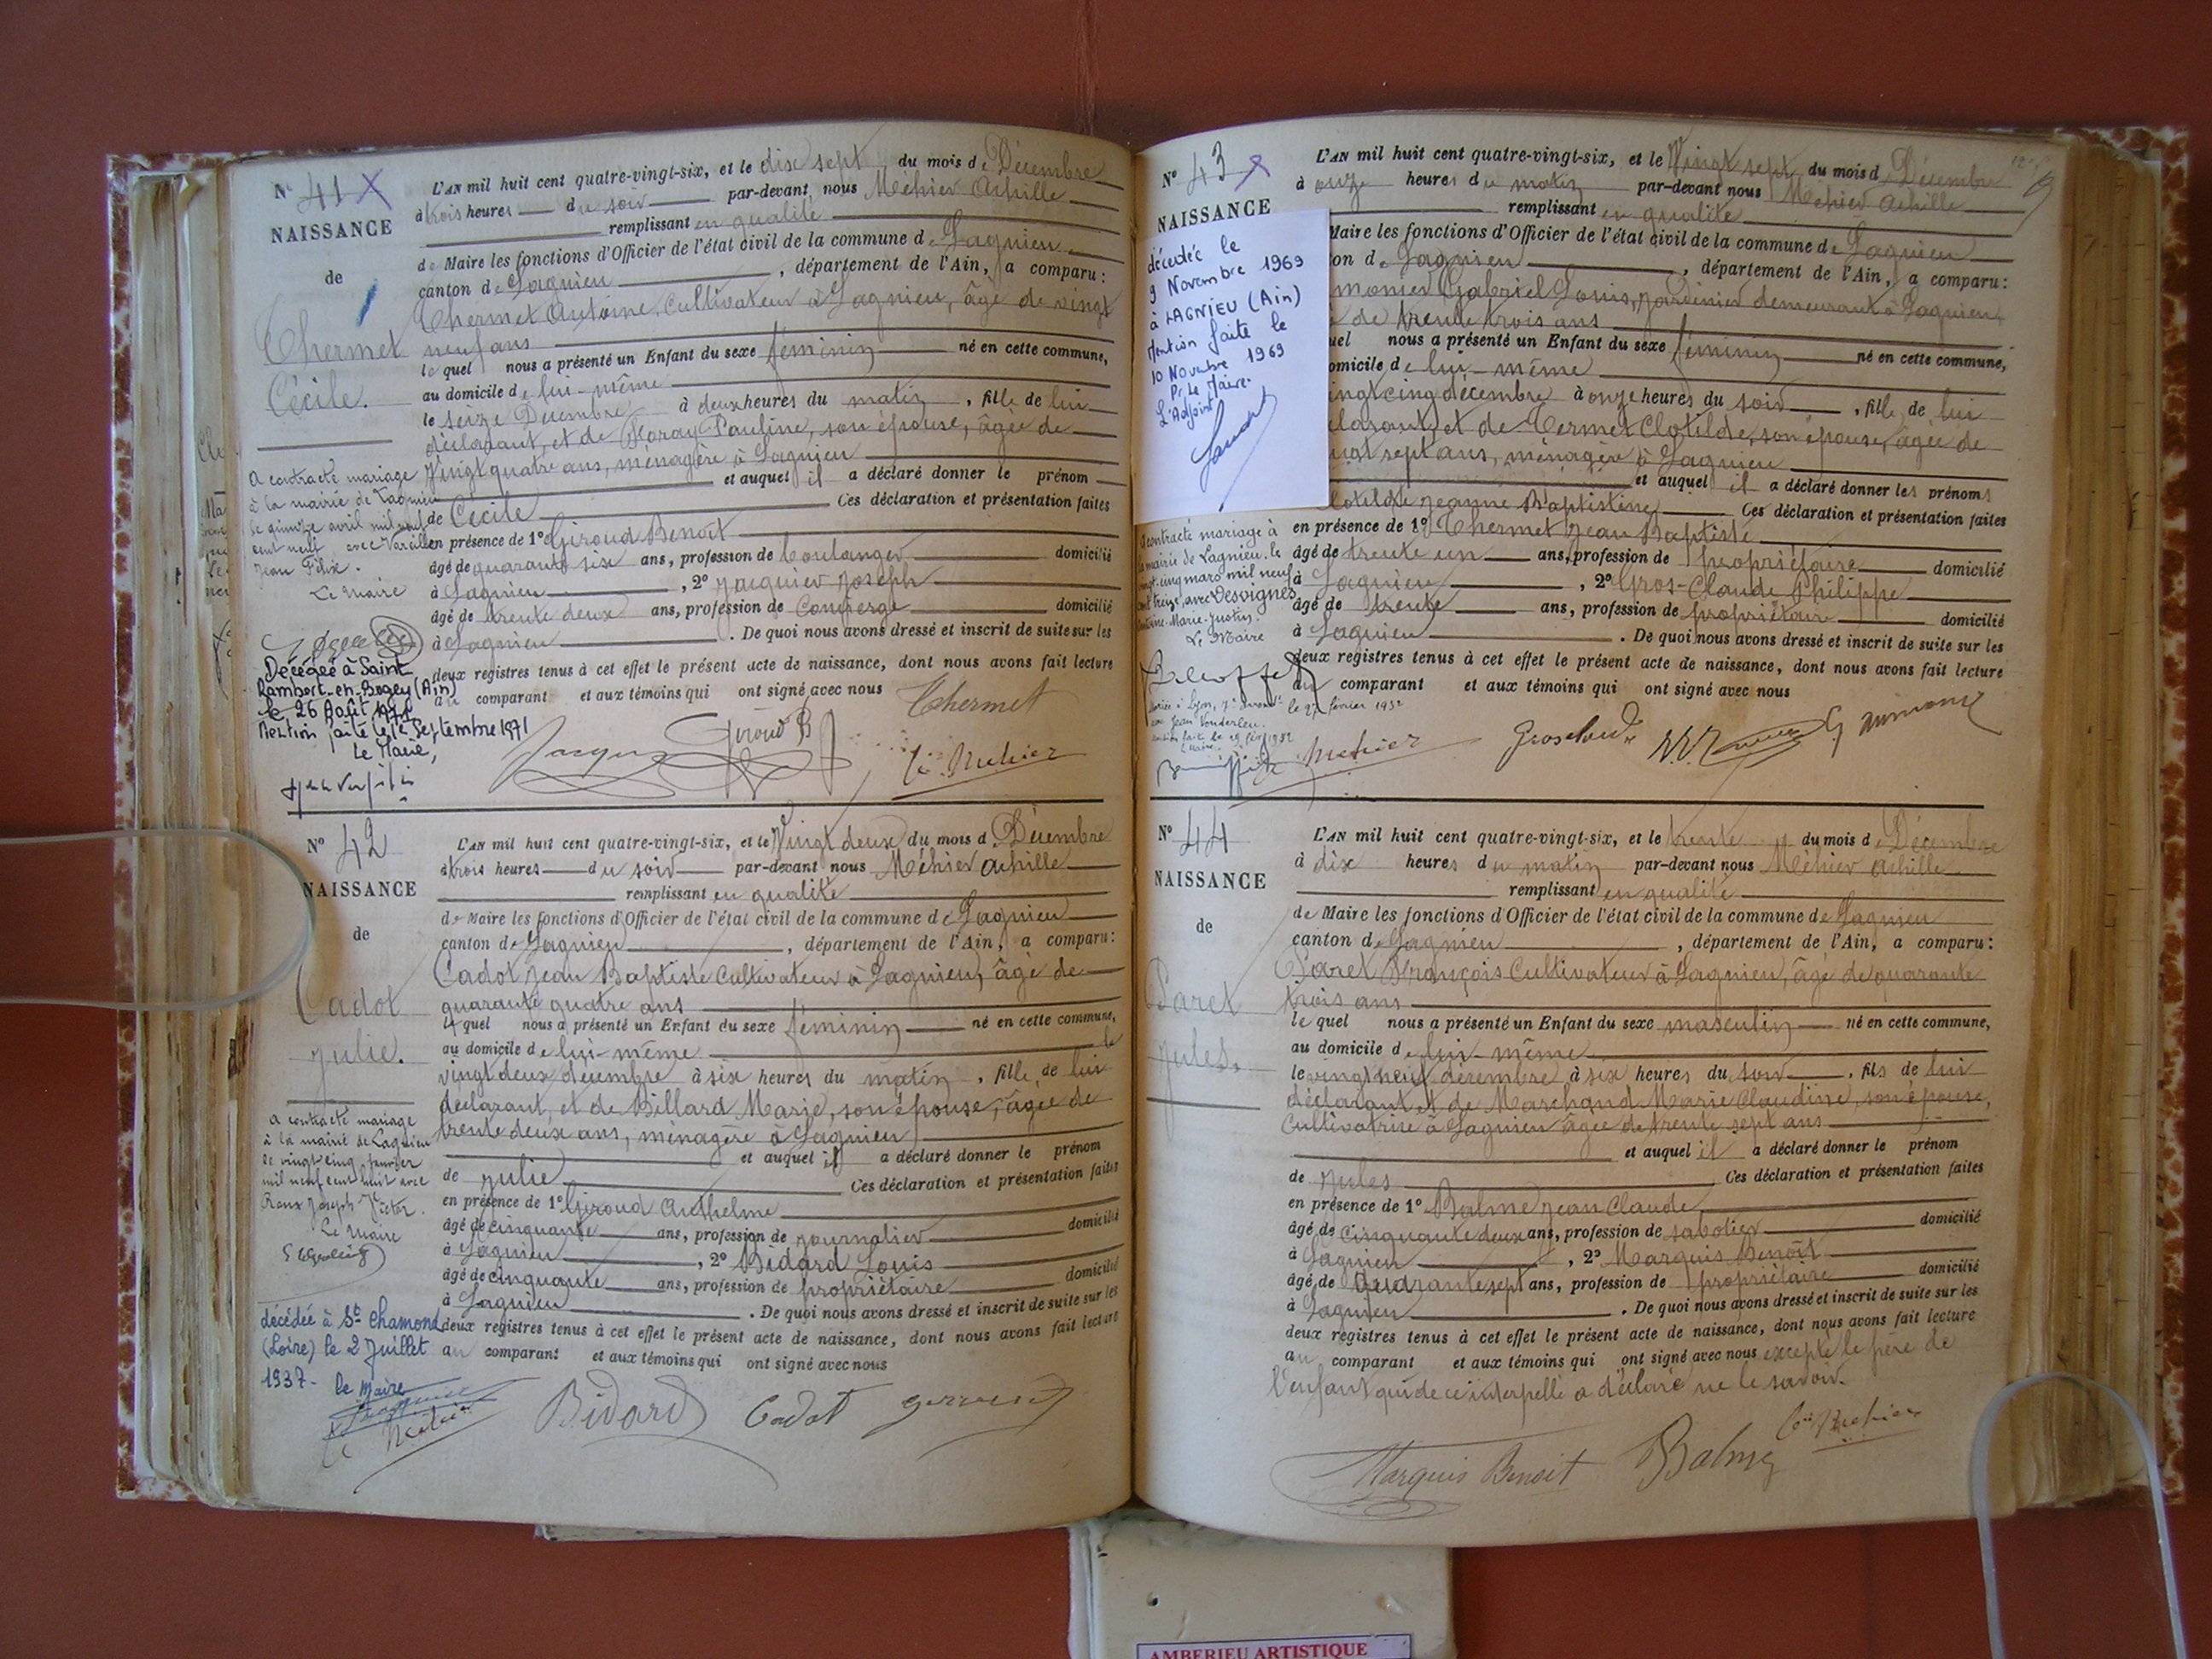 N° 41
NAISSANCE
de
Chermet
Cécile.
A contracté mariage
à la mairie de Lagnieu
le quinze avril mil neuf
cent neuf avec
Jean Félix.
Le Maire
Décédée à Saint
Rambert-en-Bugey (Ain)
le 26 Août 1971
Mention faite le 2 Septembre 1971
Le Maire,
L'AN mil huit cent quatre-vingt-six, et le dix sept du mois de Décembre
à trois heures du soir par-devant nous Méhier Achille
remplissant en qualité
de Maire les fonctions d'Officier de l'état civil de la commune de Lagnieu
canton de Lagnieu, département de l'Ain, a comparu:
Chermet Antoine, Cultivateur à Lagnieu, âgé de vingt
neuf ans
lequel nous a présenté un Enfant du sexe féminin né en cette commune,
au domicile de lui-même
le seize Décembre à deux heures du matin, fille de lui
déclarant, et de Pauline, son épouse, âgée de
Vingt quatre ans, ménagère à Lagnieu
et auquel il a déclaré donner le prénom
de Cécile Ces déclaration et présentation faites
en présence de 1° Giroud Benoît
âgé de quarante six ans, profession de boulanger domicilié
à Lagnieu, 2° Jacquier Joseph
âgé de trente deux ans, profession de Concierge domicilié
à Lagnieu. De quoi nous avons dressé et inscrit de suite sur les
deux registres tenus à cet effet le présent acte de naissance, dont nous avons fait lecture
au comparant et aux témoins qui ont signé avec nous
Chermet
Giroud B
Méhier
N° 42
NAISSANCE
de
Cadot
Julie.
A contracté mariage
à la mairie de Lagnieu
le vingt cinq janvier
mil neuf cent huit avec
Roux Joseph Victor.
Le Maire
décédée à St Chamond
(Loire) le 2 Juillet
1937- le Maire
L'AN mil huit cent quatre-vingt-six, et le Vingt deux du mois de Décembre
à trois heures du soir par-devant nous Méhier Achille
remplissant en qualité
de Maire les fonctions d'Officier de l'état civil de la commune de Lagnieu
canton de Lagnieu, département de l'Ain, a comparu:
Cadot Jean Baptiste Cultivateur à Lagnieu, âgé de
quarante quatre ans
lequel nous a présenté un Enfant du sexe féminin né en cette commune,
au domicile de lui-même le
vingt deux décembre à six heures du matin, fille de lui
déclarant, et de Billard Marie, son épouse, âgée de
trente deux ans, ménagère à Lagnieu
et auquel il a déclaré donner le prénom
de Julie Ces déclaration et présentation faites
en présence de 1° Giroud Anthelme
âgé de cinquante ans, profession de journalier domicilié
à Lagnieu, 2° Bidard Louis
âgé de cinquante ans, profession de propriétaire domicilié
à Lagnieu. De quoi nous avons dressé et inscrit de suite sur les
deux registres tenus à cet effet le présent acte de naissance, dont nous avons fait lecture
au comparant et aux témoins qui ont signé avec nous
Bidard Cadot
N° 43
NAISSANCE
décédée le
9 Novembre 1969
à LAGNIEU (Ain)
Mention faite le
10 Novembre 1969
P/ Le Maire.
L'Adjoint
A contracté mariage à
la mairie de Lagnieu. le
vingt-cinq mars mil neuf
cent treize, avec Desvignes
Antoine-Marie-Justin.
Le Maire
Mariée à Lyon, 7e le 27 février 1932
L'AN mil huit cent quatre-vingt-six, et le Vingt sept du mois de Décembre
à onze heures du matin par-devant nous Méhier Achille
remplissant en qualité
Maire les fonctions d'Officier de l'état civil de la commune de Lagnieu
on de Lagnieu, département de l'Ain, a comparu:
monier Gabriel Louis, jardinier demeurant à Lagnieu
de trente trois ans
uel nous a présenté un Enfant du sexe féminin né en cette commune,
omicile de lui-même
ingt cinq décembre à onze heures du soir, fille de lui
clarant, et de Termet Clotilde, son épouse, âgée de
ingt sept ans, ménagère à Lagnieu
et auquel il a déclaré donner les prénoms
lotilde Jeanne Baptistine Ces déclaration et présentation faites
en présence de 1° Chermet Jean Baptiste
âgé de trente un ans, profession de propriétaire domicilié
à Lagnieu, 2° Gros-Claude Philippe
âgé de trente ans, profession de propriétaire domicilié
à Lagnieu. De quoi nous avons dressé et inscrit de suite sur les
deux registres tenus à cet effet le présent acte de naissance, dont nous avons fait lecture
au comparant et aux témoins qui ont signé avec nous
Méhier
N° 44
NAISSANCE
de
Paret
Jules.
L'AN mil huit cent quatre-vingt-six, et le trente du mois de Décembre
à dix heures du matin par-devant nous Méhier Achille
remplissant en qualité
de Maire les fonctions d'Officier de l'état civil de la commune de Lagnieu
canton de Lagnieu, département de l'Ain, a comparu:
Paret François Cultivateur à Lagnieu, âgé de quarante
trois ans
lequel nous a présenté un Enfant du sexe masculin né en cette commune,
au domicile de lui-même
le vingt neuf décembre à six heures du soir, fils de lui
déclarant et de Marchand Marie Claudine, son épouse,
Cultivatrice à Lagnieu âgée de trente sept ans
et auquel il a déclaré donner le prénom
de Jules Ces déclaration et présentation faites
en présence de 1° Balme Jean Claude
âgé de cinquante deux ans, profession de sabotier domicilié
à Lagnieu, 2° Marquis Benoît
âgé de quarante sept ans, profession de propriétaire domicilié
à Lagnieu. De quoi nous avons dressé et inscrit de suite sur les
deux registres tenus à cet effet le présent acte de naissance, dont nous avons fait lecture
au comparant et aux témoins qui ont signé avec nous excepté le père de
l'enfant qui de ce interpellé a déclaré ne le savoir.
Marquis Benoit Balme Méhier
AMBERIEU ARTISTIQUE